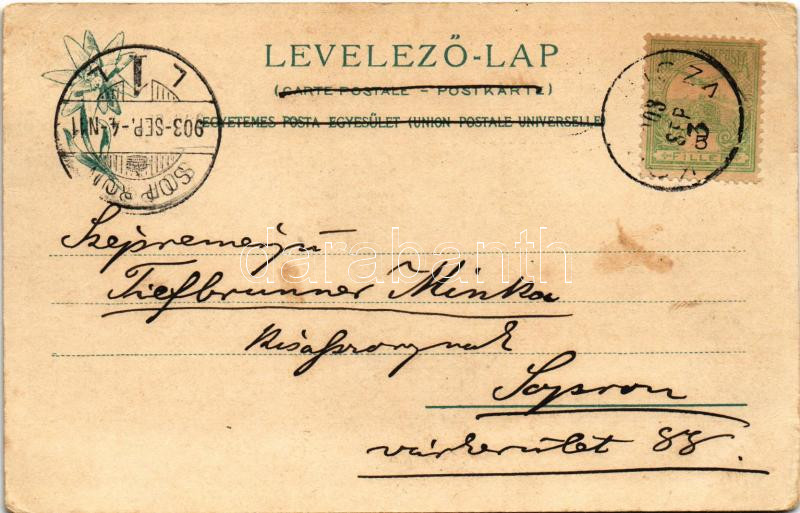 LEVELEZŐ-LAP
(CARTE POSTALE – POSTKARTE)
EGYETEMES POSTA EGYESÜLET (UNION POSTALE UNIVERSELLE
903-SEP.-4.-N11
SOPRON
03 SEP 3
FILLE
darabanth
Szépreményű
Tiefbrunner Minka
kisasszonynak
Sopron
várkerület 88.